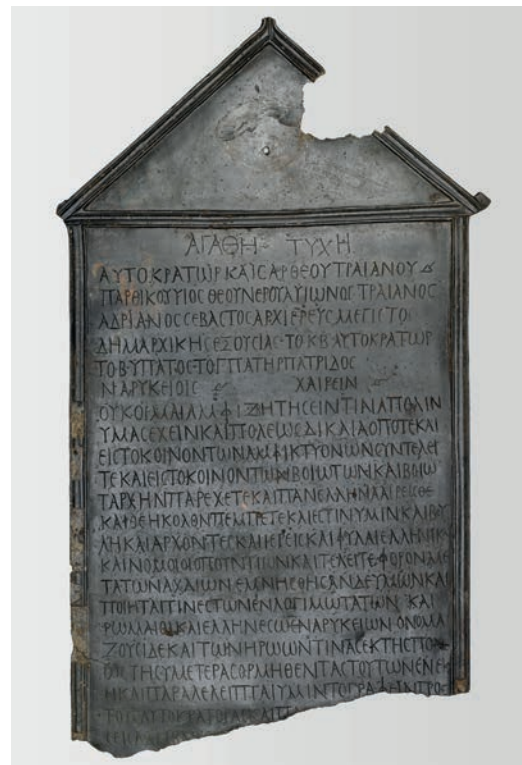 ΑΓΑΘΗ ΤΥΧΗ
ΑΥΤΟΚΡΑΤΩΡ ΚΑΙΣΑΡ ΘΕΟΥ ΤΡΑΙΑΝΟΥ
ΠΑΡΘΙΚΟΥ ΥΙΟΣ ΘΕΟΥ ΝΕΡΟΥΑ ΥΙΩΝΟΣ ΤΡΑΙΑΝΟΣ
ΑΔΡΙΑΝΟΣ ΣΕΒΑΣΤΟΣ ΑΡΧΙΕΡΕΥΣ ΜΕΓΙΣΤΟΣ
ΔΗΜΑΡΧΙΚΗΣ ΕΞΟΥΣΙΑΣ ΤΟ ΚΒ ΑΥΤΟΚΡΑΤΩΡ
ΤΟ Β ΥΠΑΤΟΣ ΤΟ Γ ΠΑΤΗΡ ΠΑΤΡΙΔΟΣ
ΝΑΡΥΚΕΙΟΙΣ ΧΑΙΡΕΙΝ
ΟΥΚ ΟΙΜΑΙ ΑΜΦΙΖΗΤΗΣΕΙΝ ΤΙΝΑ ΠΟΛΙΝ
ΥΜΑΣ ΕΧΕΙΝ ΚΑΙ ΠΟΛΕΩΣ ΔΙΚΑΙΑ ΟΠΟΤΕ ΚΑΙ
ΕΙΣ ΤΟ ΚΟΙΝΟΝ ΤΩΝ ΑΜΦΙΚΤΥΟΝΩΝ ΣΥΝΤΕΛΕΙ
ΤΕ ΚΑΙ ΕΙΣ ΤΟ ΚΟΙΝΟΝ ΤΩΝ ΒΟΙΩΤΩΝ ΚΑΙ ΒΟΙΩ
ΤΑΡΧΗΝ ΠΑΡΕΧΕΤΕ ΚΑΙ ΠΑΝΕΛΛΗΝΑ ΑΙΡΕΙΣΘΕ
ΚΑΙ ΘΕΗΚΟΛΟΝ ΠΕΜΠΕΤΕ ΚΑΙ ΕΣΤΙΝ ΥΜΙΝ ΚΑΙ ΒΟΥ
ΛΗ ΚΑΙ ΑΡΧΟΝΤΕΣ ΚΑΙ ΙΕΡΕΙΣ ΚΑΙ ΦΥΛΑΙ ΕΛΛΗΝΙΚ
ΚΑΙ ΝΟΜΟΙ ΟΙ ΟΠΟΥΝΤΙΩΝ ΚΑΙ ΤΕΛΕΙΤΕ ΦΟΡΟΝ ΜΕ
ΤΑ ΤΩΝ ΑΧΑΙΩΝ ΕΜΝΗΣΘΗΣΑΝ ΔΕ ΥΜΩΝ ΚΑΙ
ΠΟΙΗΤΑΙ ΤΙΝΕΣ ΤΩΝ ΕΝΛΟΓΙΜΩΤΑΤΩΝ ΚΑΙ
ΡΩΜΑΙΟΙ ΚΑΙ ΕΛΛΗΝΕΣ ΩΣ ΝΑΡΥΚΕΙΩΝ ΟΝΟΜΑ
ΖΟΥΣΙ ΔΕ ΚΑΙ ΤΩΝ ΗΡΩΩΝ ΤΙΝΑΣ ΕΚ ΤΗΣ ΠΟ
ΤΗΣ ΥΜΕΤΕΡΑΣ ΟΡΜΗΘΕΝΤΑΣ ΤΟΥΤΩΝ ΕΝΕ